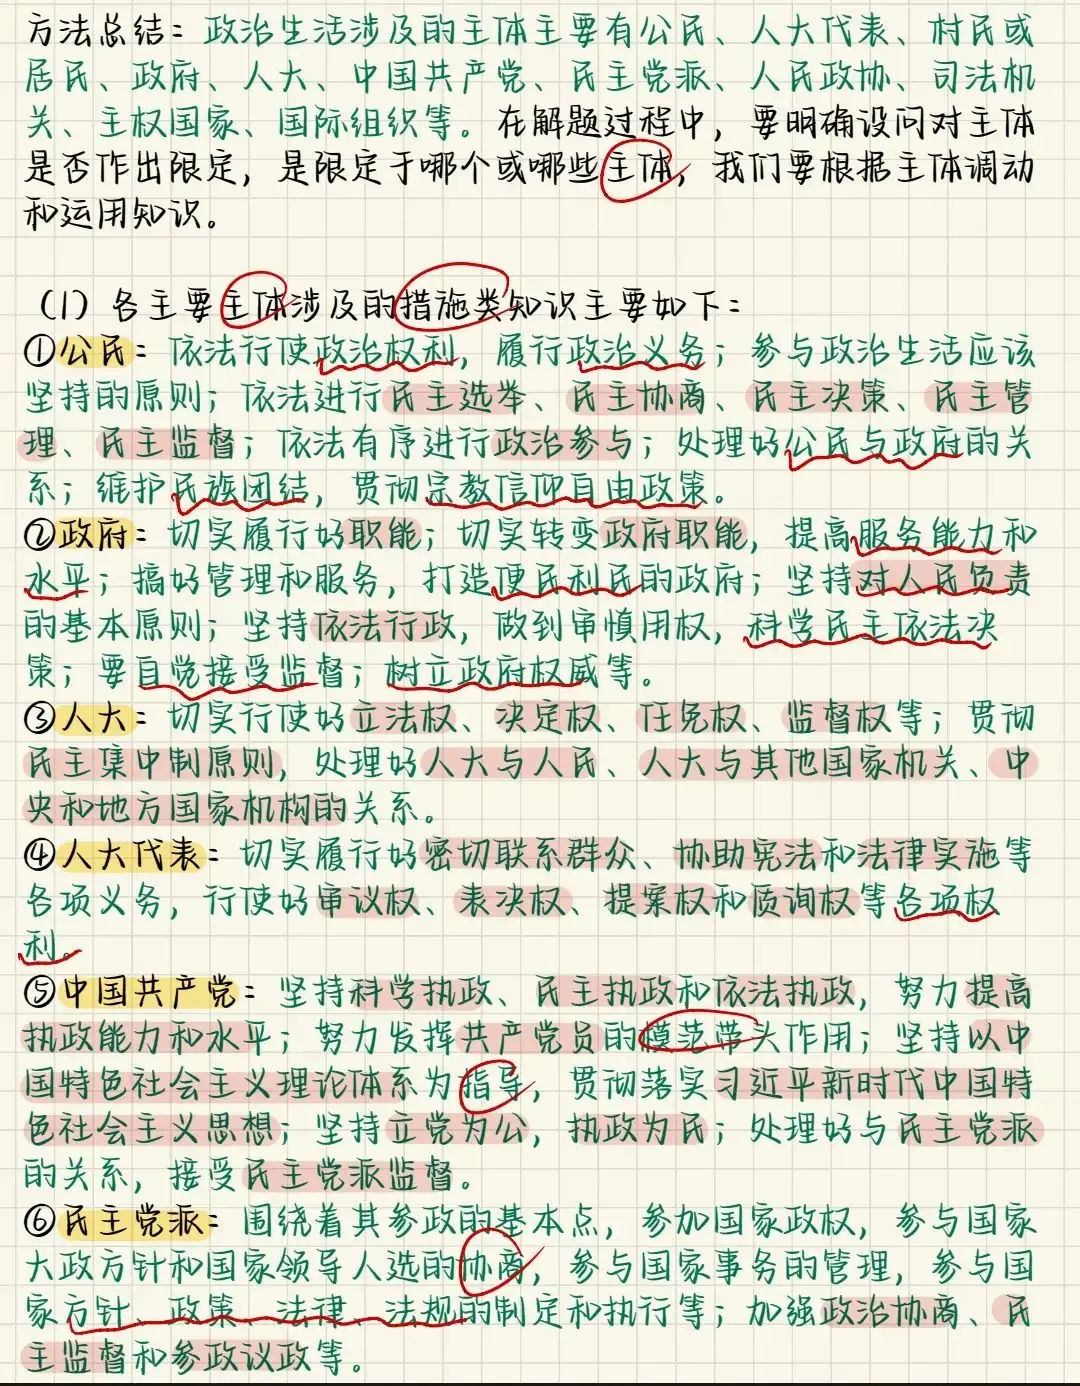 方法总结：政治生活涉及的主体主要有公民、人大代表、村民或
居民、政府、人大、中国共产党、民主党派、人民政协、司法机
关、主权国家、国际组织等。在解题过程中，要明确设问对主体
是否作出限定，是限定于哪个或哪些主体，我们要根据主体调动
和运用知识。
（1）各主要主体涉及的措施类知识主要如下：
①公民：依法行使政治权利，履行政治义务；参与政治生活应该
坚持的原则；依法进行民主选举、民主协商、民主决策、民主管
理、民主监督；依法有序进行政治参与；处理好公民与政府的关
系；维护民族团结，贯彻宗教信仰自由政策。
②政府：切实履行好职能；切实转变政府职能，提高服务能力和
水平；搞好管理和服务，打造便民利民的政府；坚持对人民负责
的基本原则；坚持依法行政，做到审慎用权，科学民主依法决
策；要自觉接受监督；树立政府权威等。
③人大：切实行使好立法权、决定权、任免权、监督权等；贯彻
民主集中制原则，处理好人大与人民、人大与其他国家机关、中
央和地方国家机构的关系。
④人大代表：切实履行好密切联系群众、协助宪法和法律实施等
各项义务，行使好审议权、表决权、提案权和质询权等各项权
利。
⑤中国共产党：坚持科学执政、民主执政和依法执政，努力提高
执政能力和水平；努力发挥共产党员的模范带头作用；坚持以中
国特色社会主义理论体系为指导，贯彻落实习近平新时代中国特
色社会主义思想；坚持立党为公，执政为民；处理好与民主党派
的关系，接受民主党派监督。
⑥民主党派：围绕着其参政的基本点，参加国家政权，参与国家
大政方针和国家领导人选的协商，参与国家事务的管理，参与国
家方针、政策、法律、法规的制定和执行等；加强政治协商、民
主监督和参政议政等。